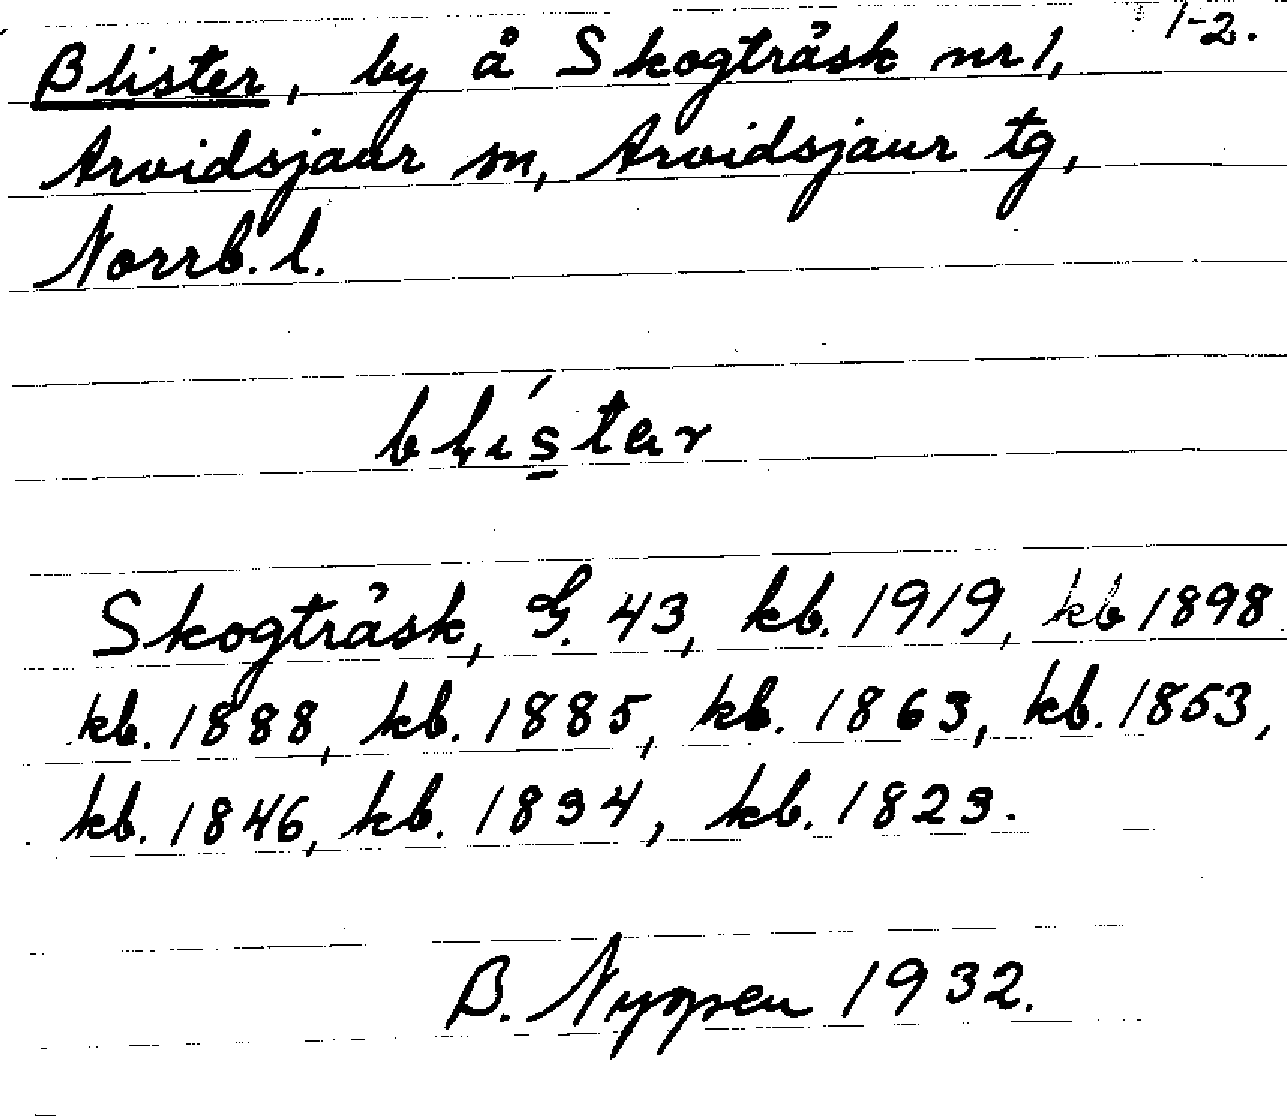 1-2.
Blister, by å Skogträsk nr 1,
Arvidsjaur sn, Arvidsjaur tg,
Norrb. l.
blístar
Skogträsk, G. 43, kb. 1919, kb 1898
kb. 1888, kb. 1885, kb. 1863, kb. 1853,
kb. 1846, kb. 1834, kb. 1823.
B. Nyopen 1932.